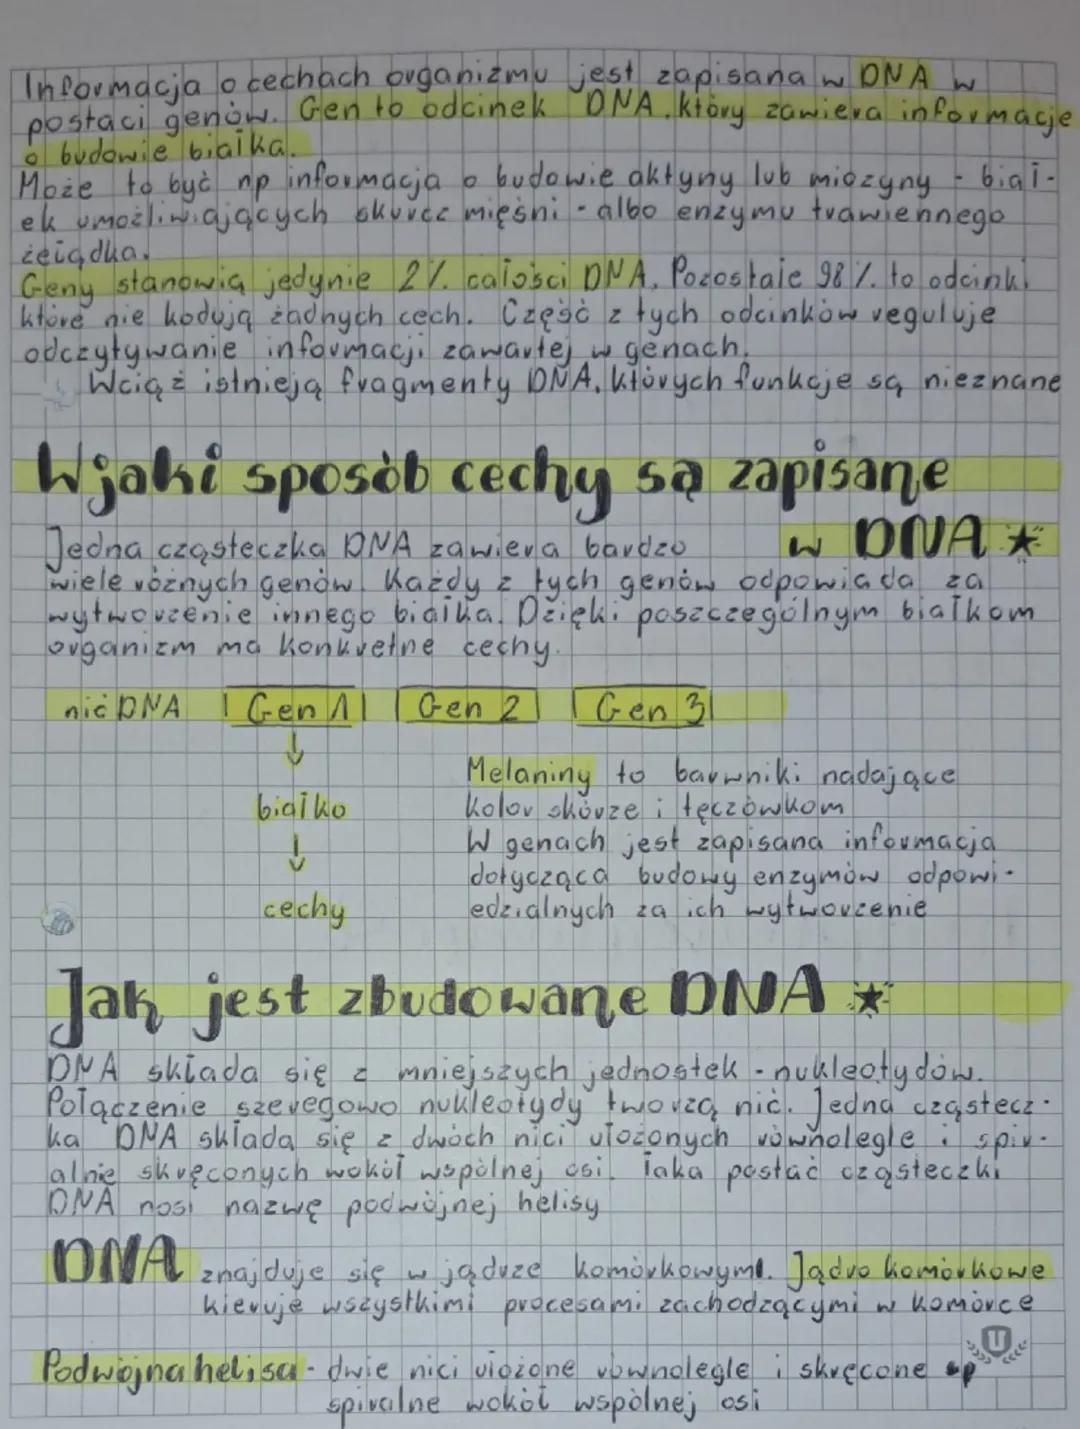 Informacja o cechach organizmu jest zapisana w DNA w
postaci genów. Gen to odcinek DNA, który zawiera informacje
o budowie białka.
Może to być np informacja o budowie aktyny lub miozyny - biał-
ek umożliwiających skurcz mięśni - albo enzymu trawiennego
żołądka.
Geny stanowią jedynie 2% całości DNA. Pozostałe 98% to odcinki
które nie kodują żadnych cech. Część z tych odcinków reguluje
odczytywanie informacji zawartej w genach.
Wciąż istnieją fragmenty DNA, których funkcje są nieznane
W jaki sposób cechy są zapisane
w DNA
Jedna cząsteczka DNA zawiera bardzo
wiele różnych genów. Każdy z tych genów odpowiada za
wytworzenie innego białka. Dzięki poszczególnym białkom
organizm ma konkretne cechy.
nić DNA Gen 1 Gen 2 Gen 3
białko
cechy
Melaniny to barwniki nadające
kolor skórze i tęczówkom
W genach jest zapisana informacja
dotycząca budowy enzymów odpowi-
edzialnych za ich wytworzenie
Jak jest zbudowane DNA
DNA składa się z mniejszych jednostek - nukleotydów.
Połączenie szeregowo nukleotydy tworzą nić. Jedna cząstecz-
ka DNA składa się z dwóch nici ułożonych równolegle i spir-
alnie skręconych wokół wspólnej osi. Taka postać cząsteczki
DNA nosi nazwę podwójnej helisy
DNA znajduje się w jądrze komórkowym. Jądro komórkowe
kieruje wszystkimi procesami zachodzącymi w komórce
Podwójna helisa - dwie nici ułożone równolegle i skręcone
spiralne wokół wspólnej osi